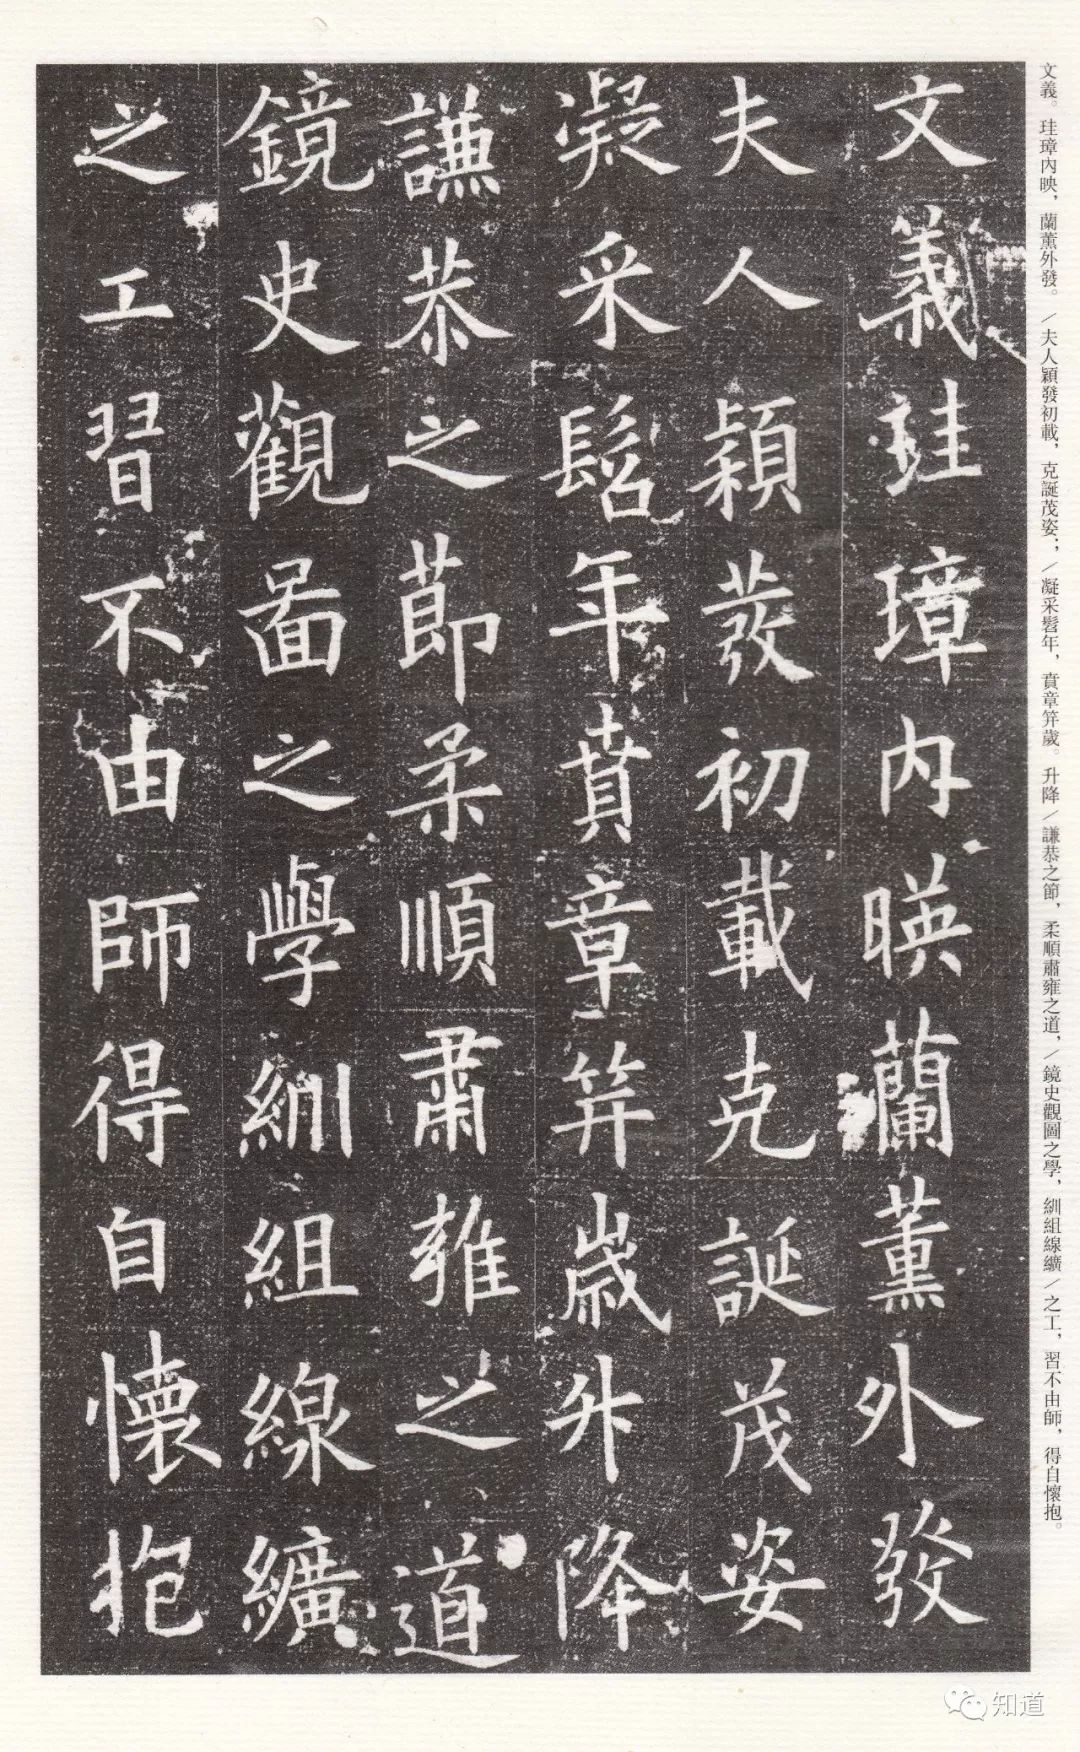 文義。珪璋內映，蘭薰外發。／夫人穎發初載，克誕茂姿；／凝采髫年，賁章笄歲。升降／謙恭之節，柔順肅雍之道，／鏡史觀圖之學，紃組線纊／之工，習不由師，得自懷抱。
文義珪璋内暎蘭薰外發
夫人穎發初載克誕茂姿
凝采髫年賁章笄歲升降
謙恭之節柔順肅雍之道
鏡史觀圖之學紃組線纊
之工習不由師得自懷抱
知道